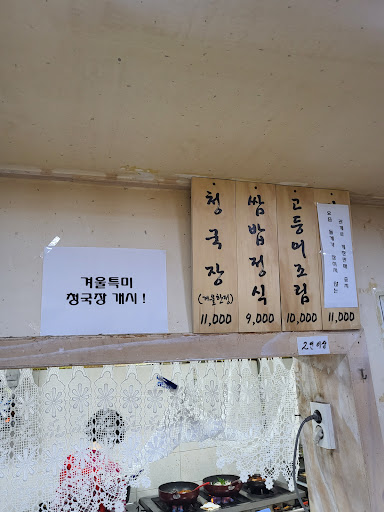 겨울특미
청국장 개시 !
청국장
(겨울한정)
11,000
쌈밥정식
9,000
고등어조림
10,000
11,000
2인 이상